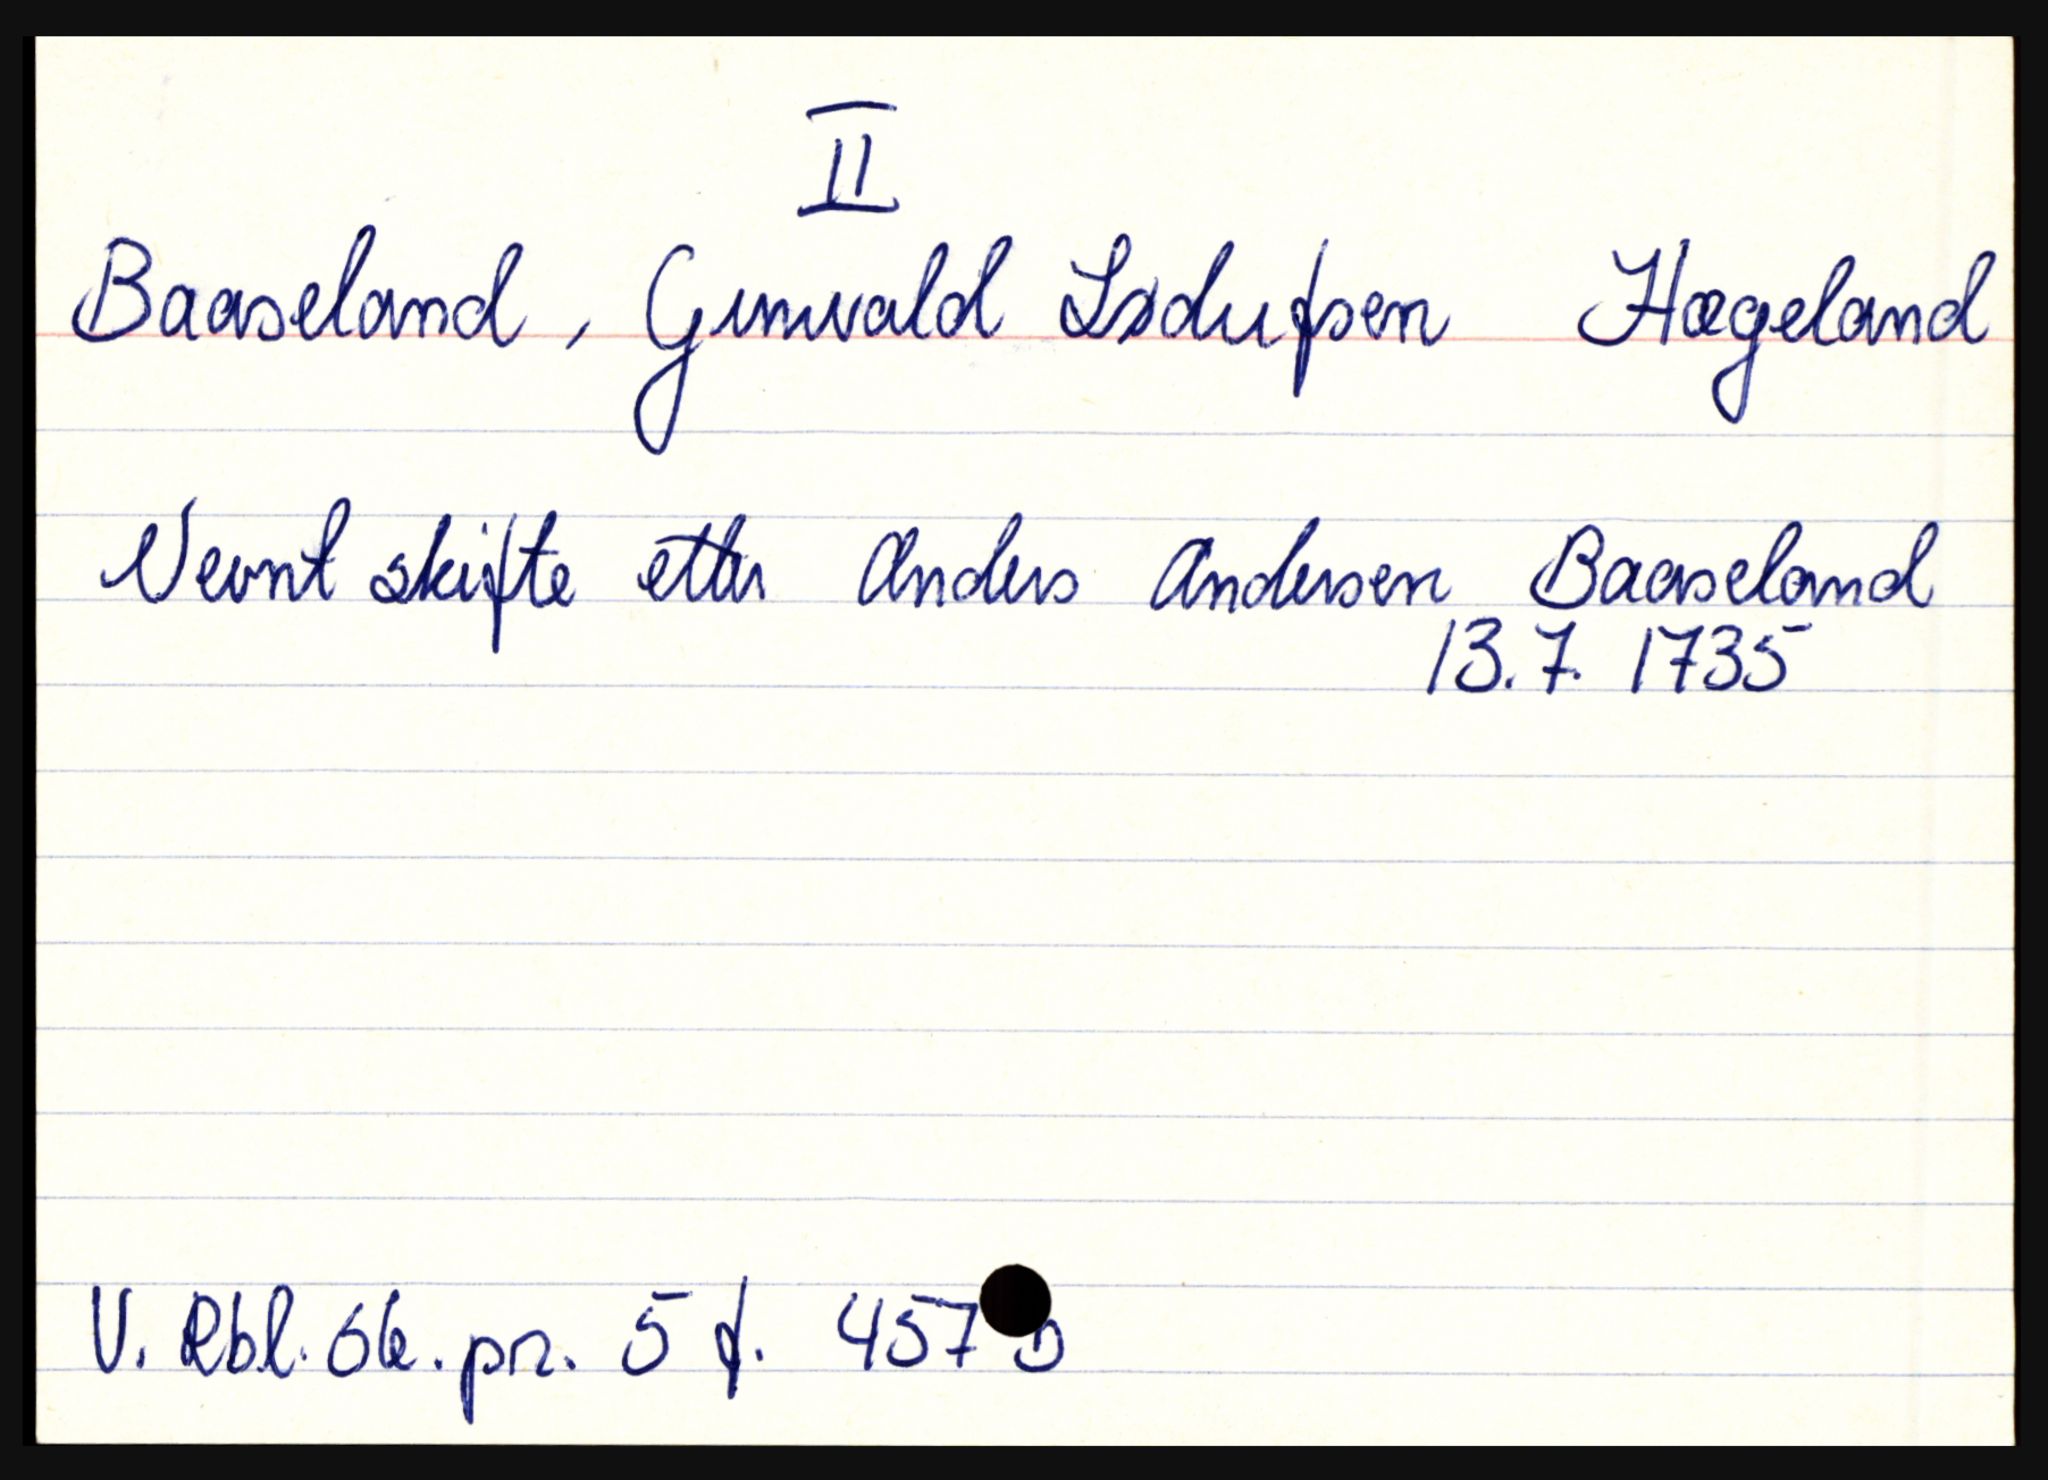 II
Baaseland, Gunvald Hægeland
Nevnt skifte etter Anders Andersen Baaseland
13.7. 1735
V. Rbl. sk. pr. 5 f. 457 b